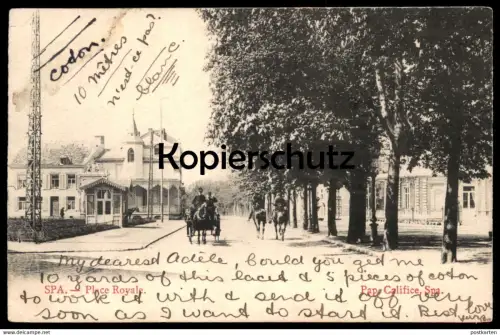 coton.
10 mètres
n'est-ce pas?
blanc.
Kopierschutz
My dearest Adèle, Could you get me
10 yards of this lace & 5 pieces of coton
SPA. - Place Royale.
Papo Califice, Spa.
to work it with & send it off very
soon as I want to start it. Best love